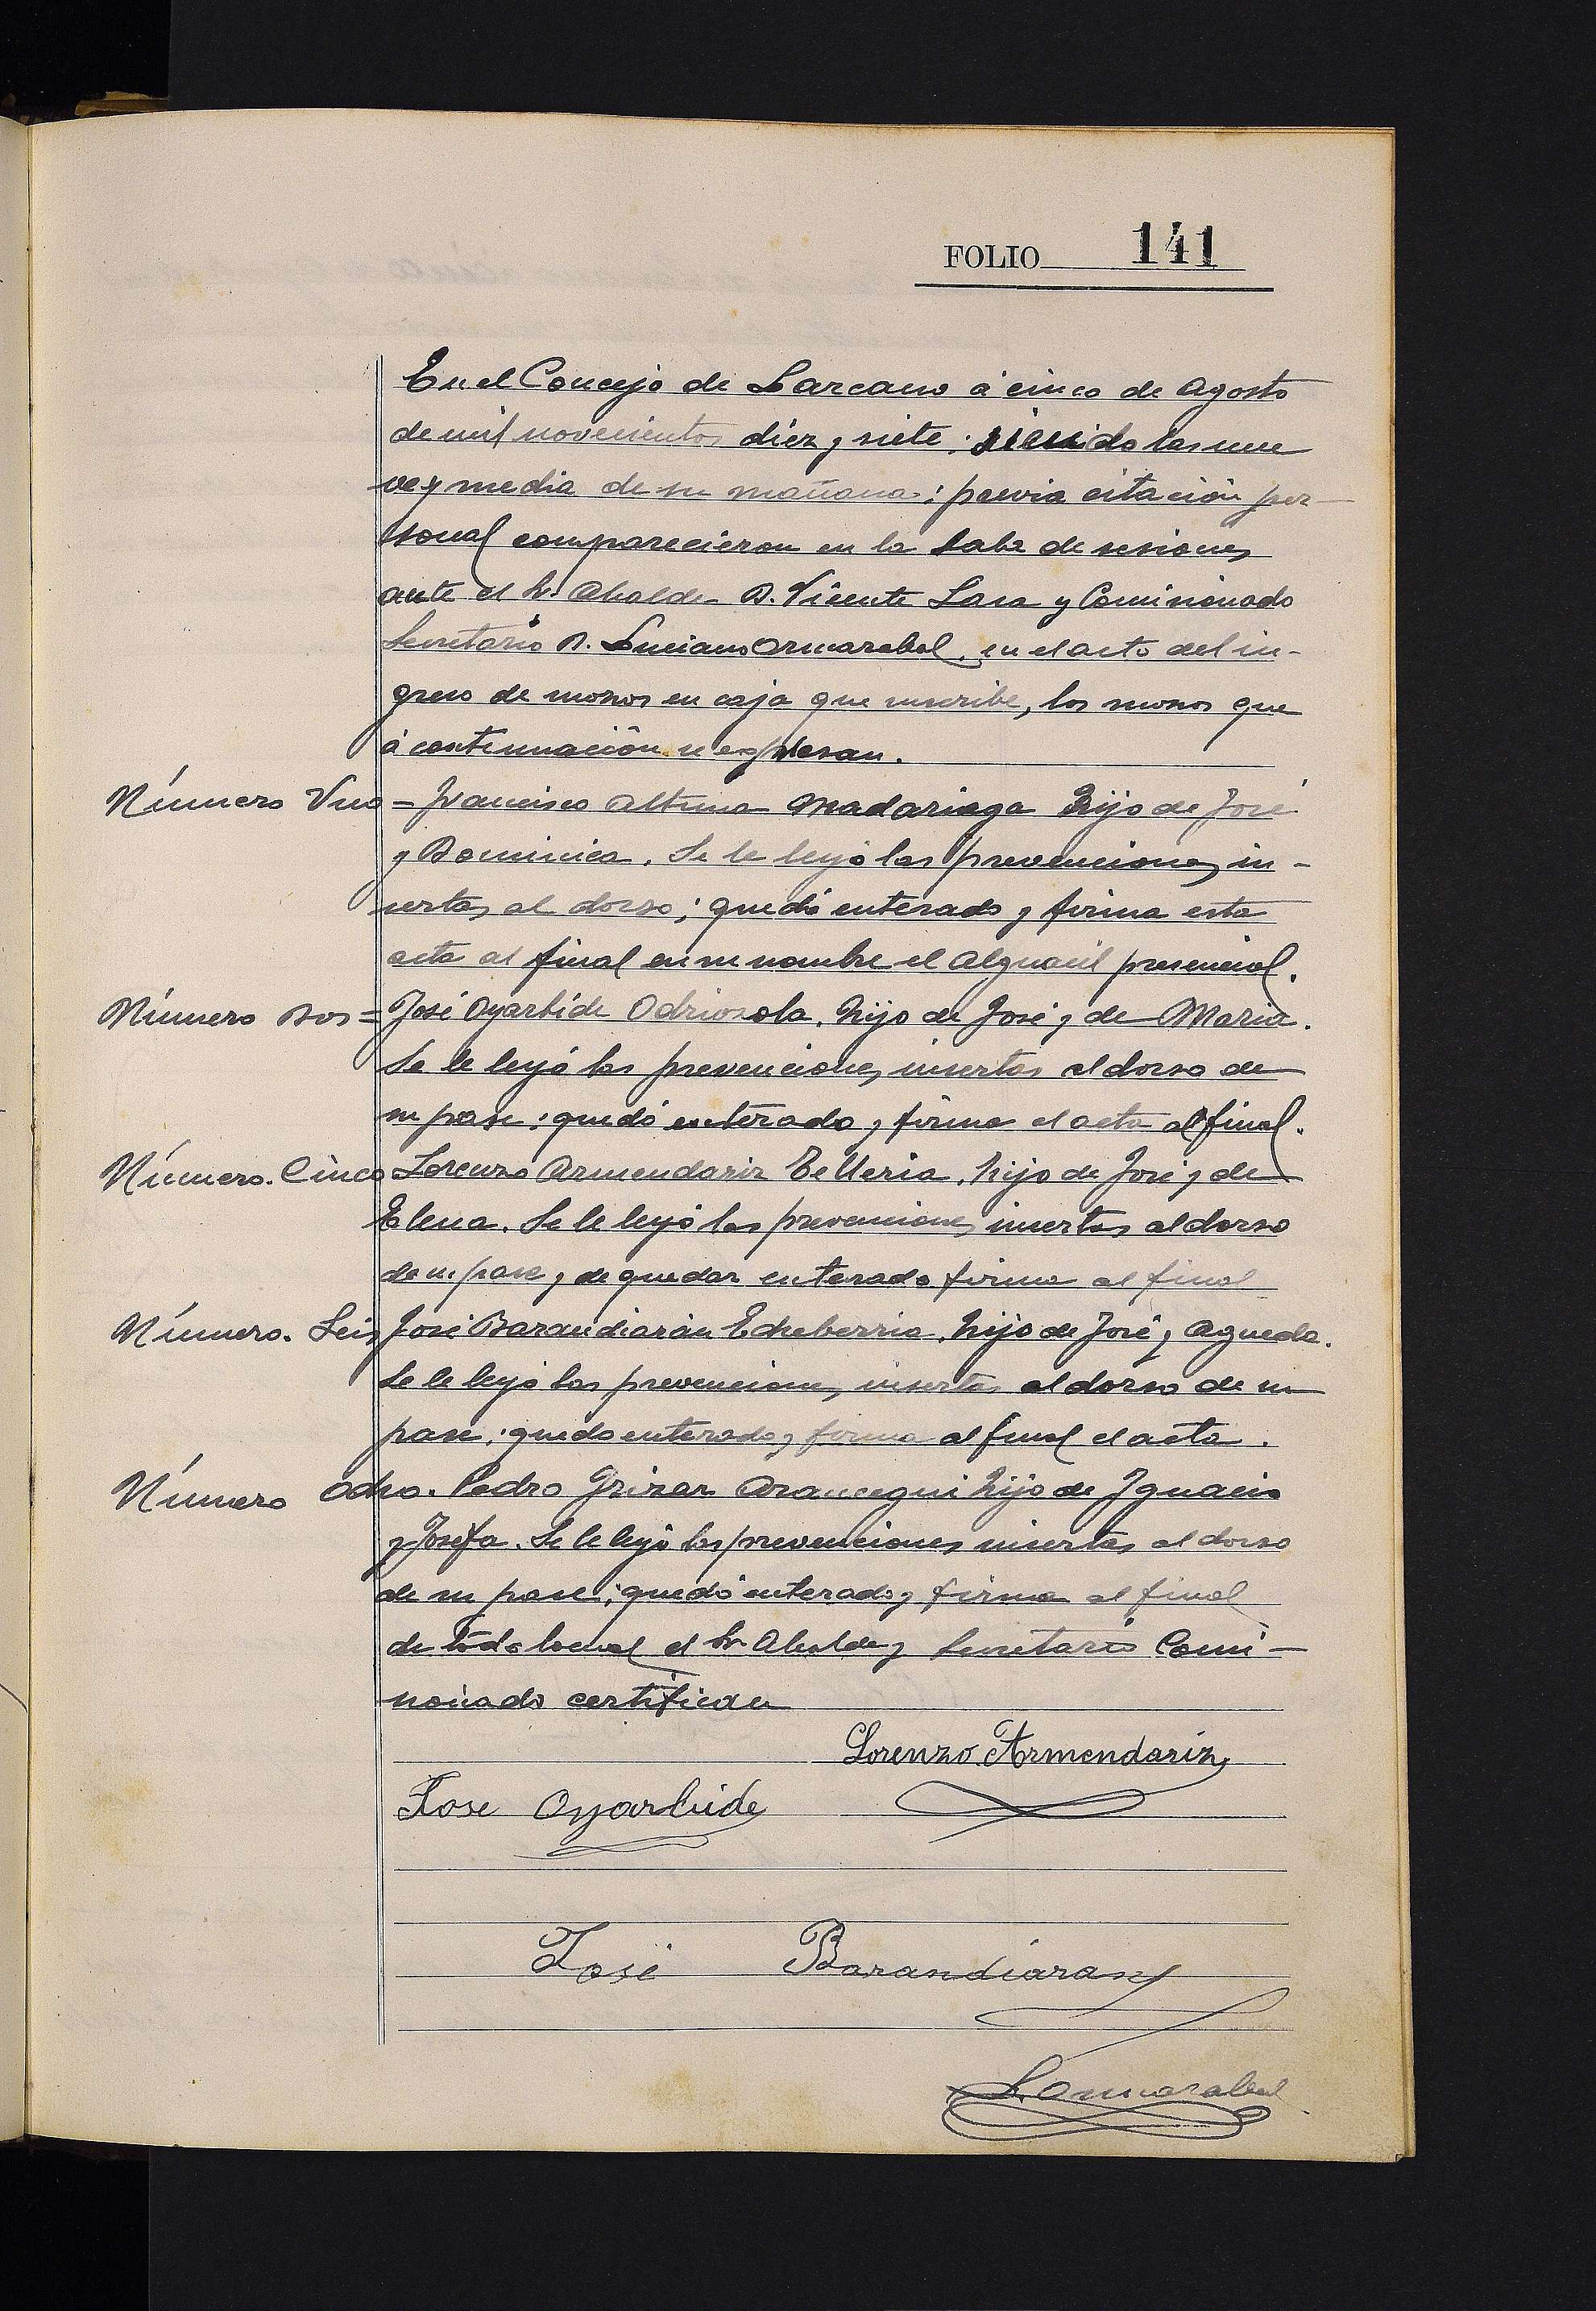 FOLIO 141
En el Concejo de Lazcano á cinco de Agosto
de mil novecientos diez y siete; siendo las nue
ve y media de su mañana; previa citación per-
sonal comparecieron en la sala de sesiones
ante el Sr. Alcalde D. Vicente Lasa y Comisionado
Secretario D. Luciano Ormazabal, en el acto del in-
greso de mozos en caja que suscribe, los mozos que
á continuación se expresan.
Número Uno = Francisco Altuna Madariaga hijo de José
y Dominica. Se le leyó las prevenciones in-
sertas al dorso; quedó enterado y firma esta
acta al final en su nombre el Alguacil presencial.
Número dos = José Oyarbide Odriozola, hijo de José y de Maria.
Se le leyó las prevenciones insertas al dorso de
su pase; quedó enterado y firma el acta al final.
Número. Cinco Lorenzo Armendariz Telleria, hijo de José y de
Elena. Se le leyó las prevenciones insertas al dorso
de su pase y de quedar enterado firma al final
Número. Seis José Barandiarán Echeberria, hijo de José y Agueda.
Se le leyó las prevenciones insertas al dorso de su
pase; quedo enterado y firma al final el acta.
Número Ocho. Pedro Yrizar Arancegui hijo de Ignacio
y Josefa. Se le leyó las prevenciones insertas al dorso
de su pase; quedó enterado y firma al final
de todo lo cual el Sr Alcalde y Secretario Comi-
sionado certifican
Lorenzo Armendariz
Jose Oyarbide
José Barandiaran
L. Ormazabal